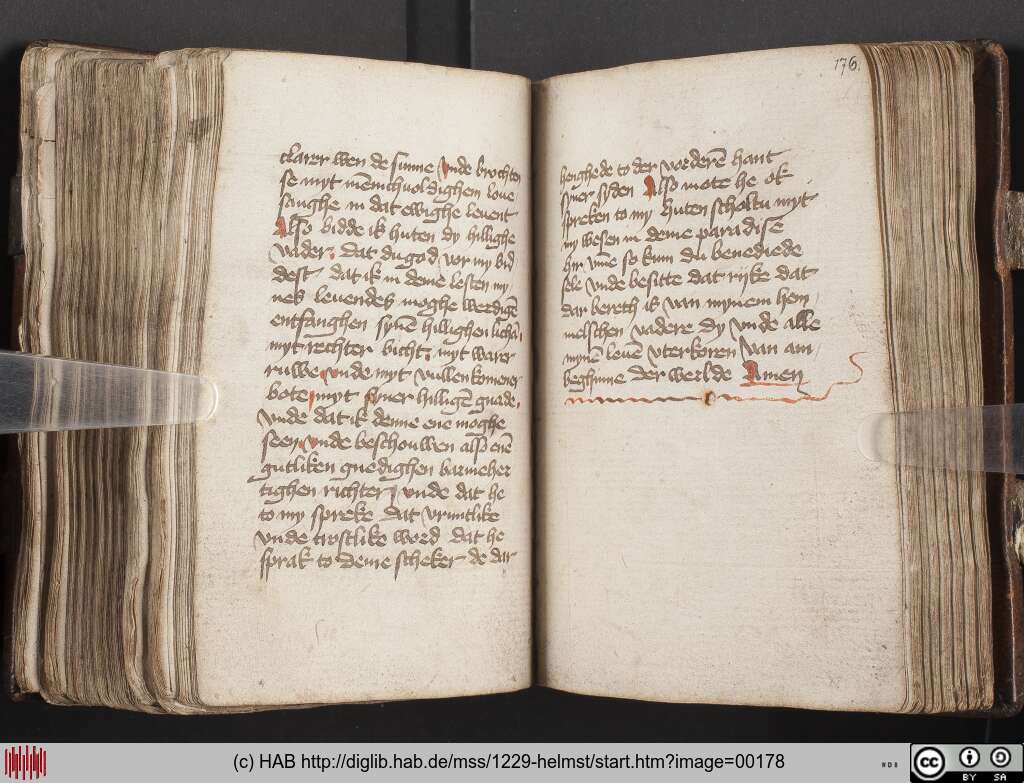 clarer wen de sunne vnde brochten
se myt mēnichuoldighem loue
sanghe in dat ewighe leuent
Also bidde ik huten dy hillighe
vader. dat du god vor my bid
dest dat ik in deme lesten my
nes leuendes moghe werdigē
entfanghen synē hillighen lichā,
myt rechter bicht. myt warer
ruwe vnde myt vullenkomener
bote, myt syner hilligē gnade,
vnde dat ik denne ene moghe
seen, vnde beschouwen also enē
gutliken gnedighen barmeher
tighen richter, vnde dat he
to my spreke dat vruntlike
vnde trostlike word dat he
sprak to deme scheker de dar
176.
henghede to der vorderē hant
syner syden Also mote he ok
spreken to my huten schaltu myt
my wesen in deme paradise
hir vme so kum du benediede
sele vnde besitte dat rijke dat
dar bereth is van mynem hem,
melschen vadere dy vnde alle
mynē leuē vterkoren van am,
beghinne der werlde Amen
(c) HAB http://diglib.hab.de/mss/1229-helmst/start.htm?image=00178
WDB
cc BY SA